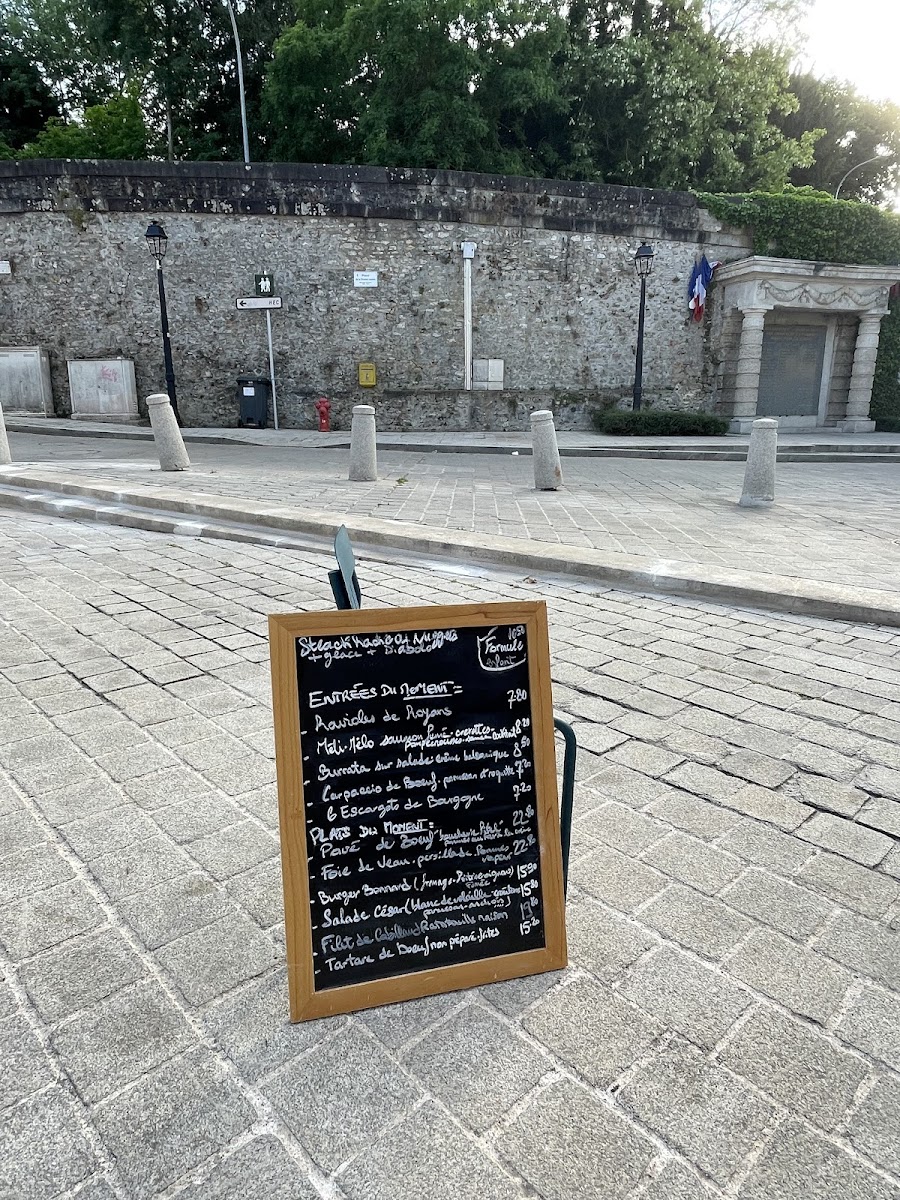 Steack haché ou Nuggets 10.50
+ glace + Diabolo
Formule
enfant
ENTRÉES DU MOMENT:
- Ravioles de Royans 7.80
- Méli-Mélo saumon fumé crevettes 8.20
pamplemousse
- Burrata sur salade crème balsamique 8.50
- Carpaccio de Boeuf, parmesan et roquette 7.20
- 6 Escargots de Bourgogne 7.20
PLATS DU MOMENT:
- Pavé de Boeuf 22.80
- Foie de Veau persillade Pommes 22.80
vapeur
- Burger Bonnard 15.90
- Salade César (blanc de volaille croûtons 15.80
parmesan anchois)
- Filet de Cabillaud Ratatouille maison 19.80
- Tartare de Boeuf non préparé frites 15.20